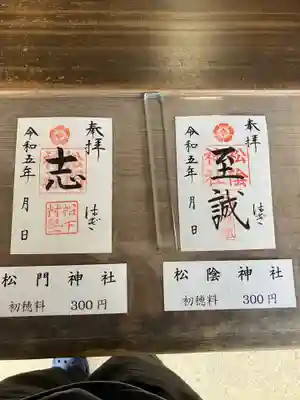 奉拝
志
はぎ
松下村塾
令和五年 月 日
松門神社
初穂料 300円
奉拝
松陰神社
至誠
はぎ
令和五年 月 日
松陰神社
初穂料 300円